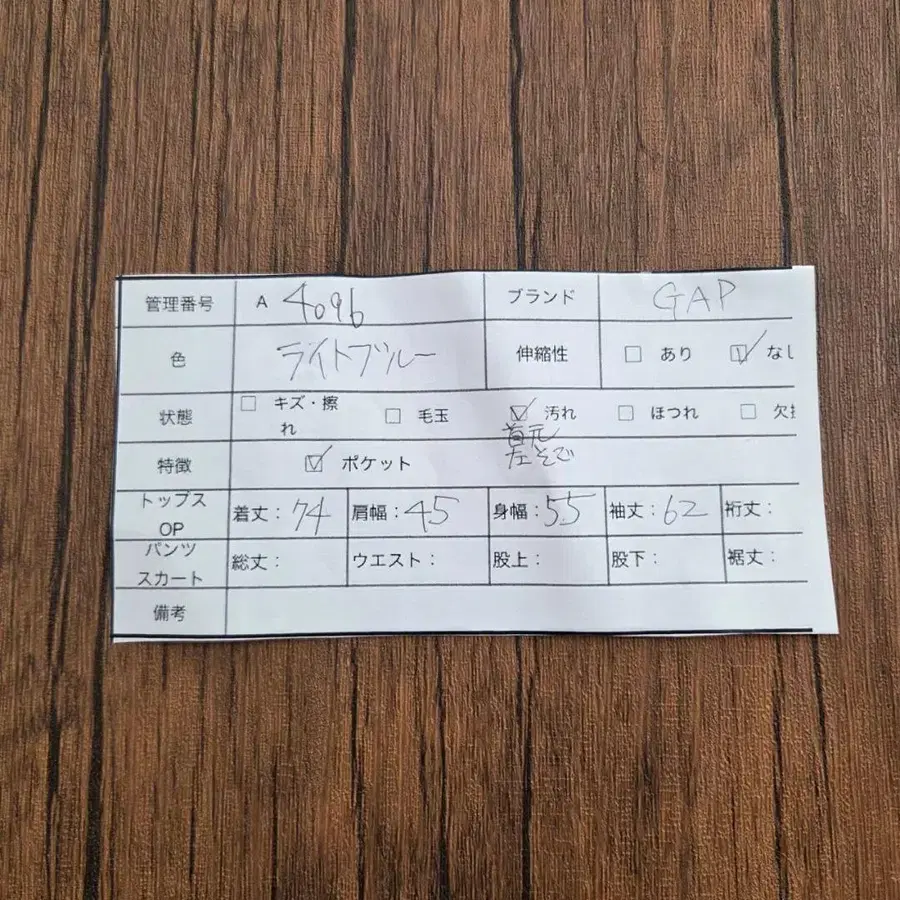 管理番号 A 4096 ブランド GAP
色 ライトブルー 伸縮性 ☐ あり ☑ なし
状態 ☐ キズ・擦れ ☐ 毛玉 ☑ 汚れ ☐ ほつれ ☐ 欠
首元
左そで
特徴 ☑ ポケット
トップス OP 着丈:74 肩幅:45 身幅:55 袖丈:62 裄丈:
パンツ スカート 総丈: ウエスト: 股上: 股下: 裾丈:
備考